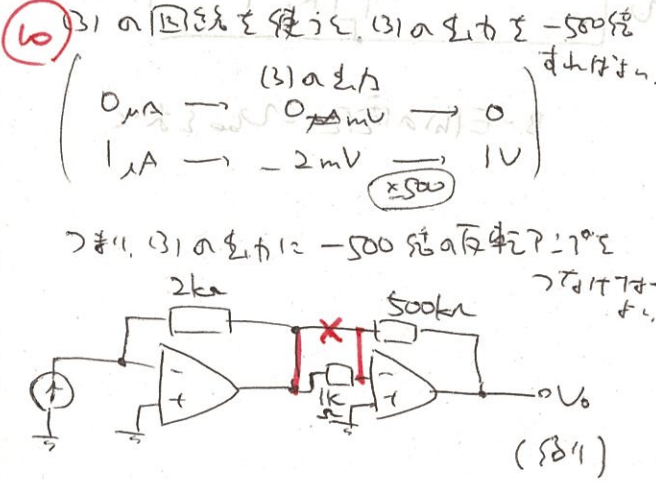 10 (3)の回路を使うと、(3)の出力を-500倍
すればよい。
(3)の出力
0μA → 0mV → 0
1μA → -2mV → 1V
×500
つまり、(3)の出力に-500倍の反転アンプを
つなげばよい。
2kΩ
500kΩ
- +
1kΩ
- +
Vo
(終り)